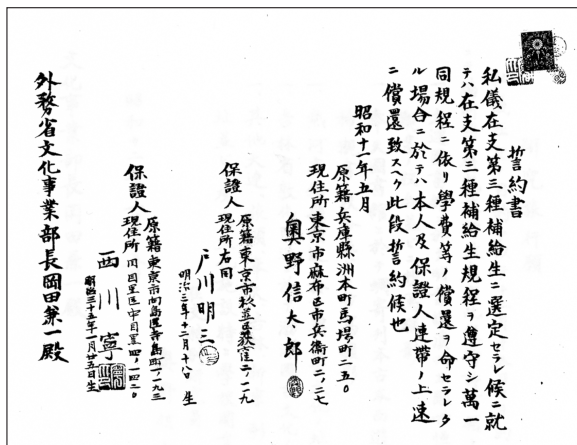 誓約書
私儀在支第三種補給生ニ選定セラレ候ニ就
テハ在支第三種補給生規程ヲ遵守シ萬一
同規程ニ依リ學費等ノ償還ヲ命セラレタ
ル場合ニ於テハ本人及保證人連帶ノ上速
ニ償還致スヘク此段誓約候也
昭和十一年五月
原籍 兵庫縣洲本町馬場町二五〇
現住所 東京市麻布區市兵衞町二ノ二七
奥野信太郎
保證人 原籍 東京市杉並區荻窪二ノ一一九
現住所 右同
戸川明三
明治三年十二月十八日 生
保證人 原籍 東京市向島區寺島町一ノ一九三
現住所 目黒區中目黒四ノ一四二〇
西川寧
明治三十五年一月廿五日生
外務省文化事業部長岡田兼一殿